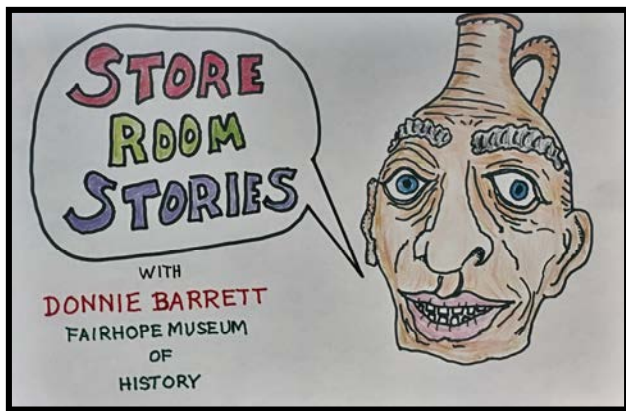 STORE
ROOM
STORIES
WITH
DONNIE BARRETT
FAIRHOPE MUSEUM
OF
HISTORY